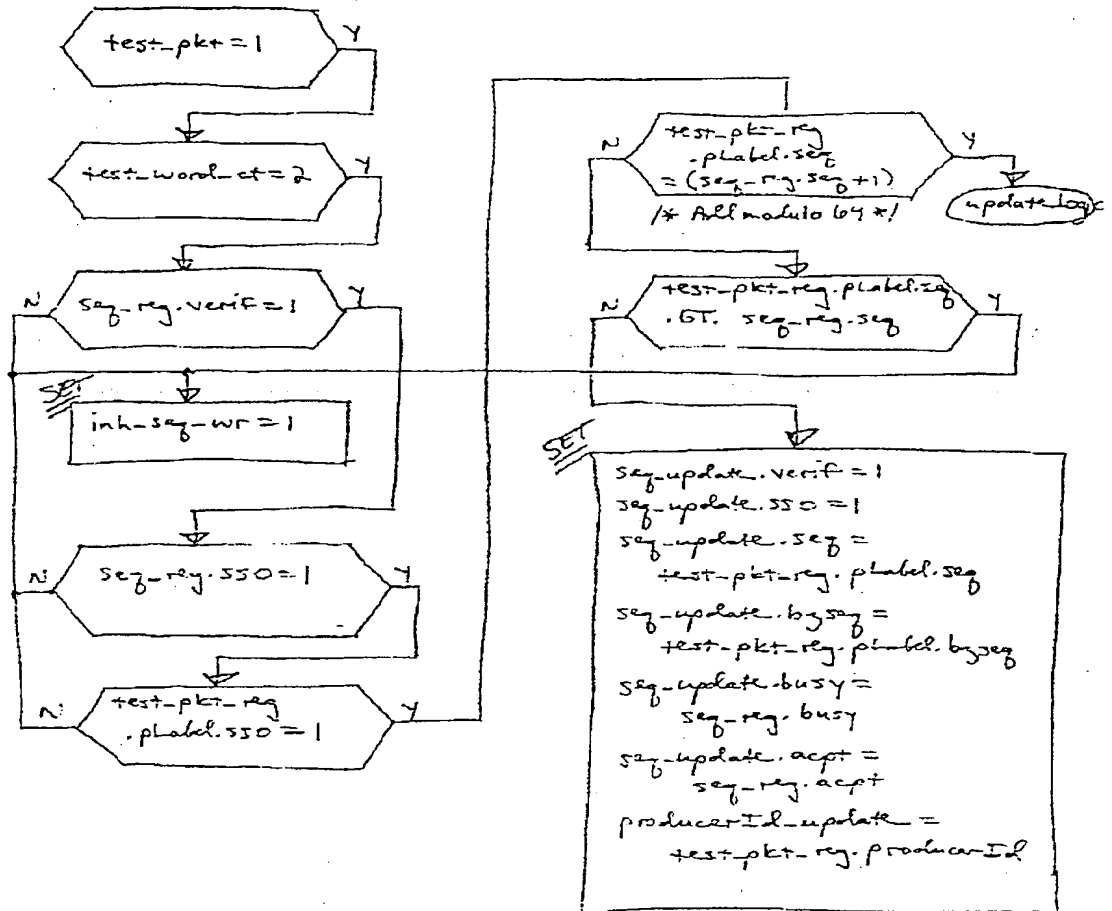 test_pkt = 1
Y
test_word_ct = 2
Y
N
seq_reg.verif = 1
Y
SET
inh_seq_wr = 1
N
seq_reg.sso = 1
Y
N
test_pkt_reg
.pLabel.sso = 1
Y
N
test_pkt_reg
.pLabel.seq
= (seq_reg.seq + 1)
Y
/* All modulo 64 */
update logic
N
test_pkt_reg.pLabel.seq
.GT. seq_reg.seq
Y
SET
seq_update.verif = 1
seq_update.sso = 1
seq_update.seq =
test_pkt_reg.pLabel.seq
seq_update.bzseq =
test_pkt_reg.pLabel.bzseq
seq_update.busy =
seq_reg.busy
seq_update.acpt =
seq_reg.acpt
producerId_update =
test_pkt_reg.producerId